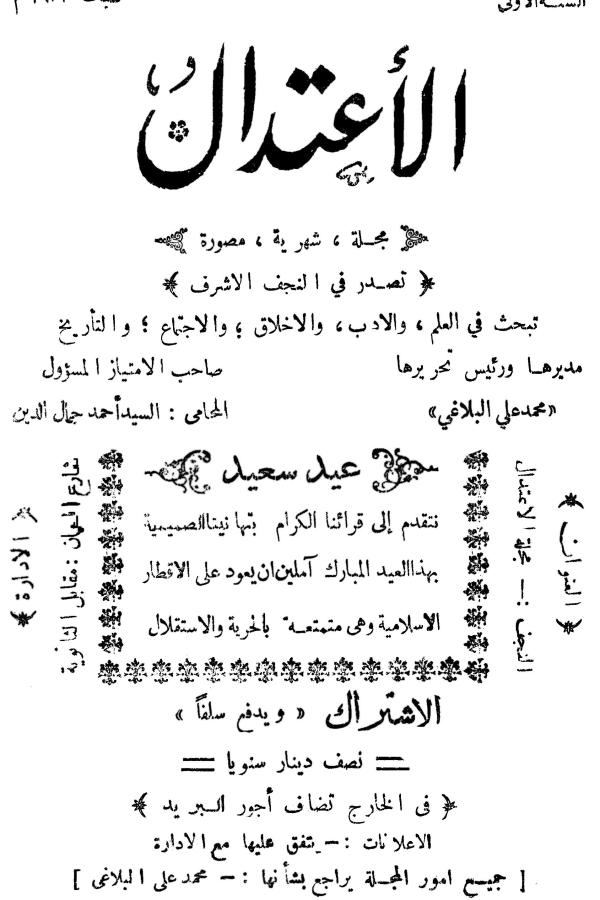 السنة الاولى
الأعتدال
مجلة ، شهرية ، مصورة
تصدر في النجف الاشرف
تبحث في العلم ، والادب ، والاخلاق ؛ والاجتماع ؛ والتأريخ
مديرها ورئيس تحريرها
صاحب الامتياز المسؤول
«محمد علي البلاغي»
المحامى : السيد أحمد جمال الدين
العنوان
النجف :— مجلة الاعتدال
عيد سعيد
نتقدم إلى قرائنا الكرام بتهانيناالصميمية
بهذاالعيد المبارك آملين ان يعود على الاقطار
الاسلامية وهى متمتعة بالحرية والاستقلال
الادارة
شارع : مقابل الثانوية
الاشتراك « ويدفع سلفاً »
نصف دينار سنويا
فى الخارج تضاف أجور البريد
الاعلانات :— يتفق عليها مع الادارة
[ جميع امور المجلة يراجع بشأنها :— محمد على البلاغى ]